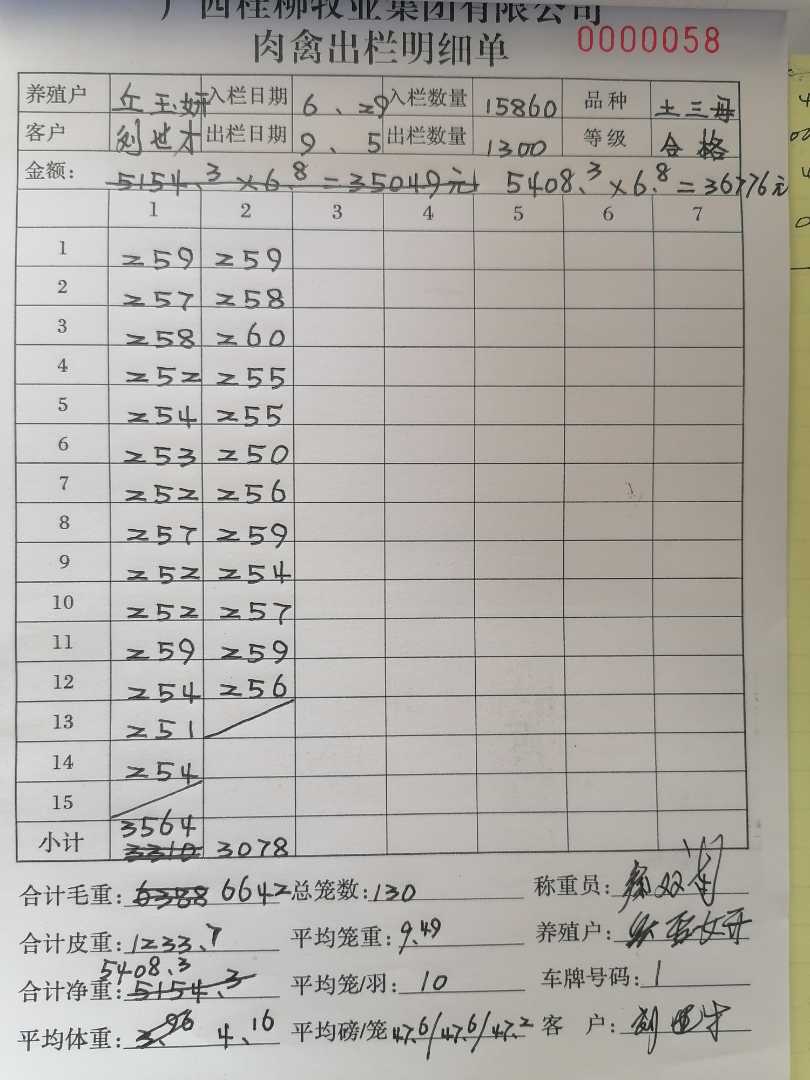 广西桂柳牧业集团有限公司
肉禽出栏明细单 0000058
养殖户 丘玉妍 入栏日期 6、29 入栏数量 15860 品种 土三母
客户 刘世才 出栏日期 9、5 出栏数量 1300 等级 合格
金额: 5154.3×6.8=35049元 5408.3×6.8=36776元
1 2 3 4 5 6 7
1 259 259
2 257 258
3 258 260
4 252 255
5 254 255
6 253 250
7 252 256
8 257 259
9 252 254
10 252 257
11 259 259
12 254 256
13 251
14 254
15
3564
小计 3310 3078
合计毛重: 6388 6642 总笼数: 130 称重员:
合计皮重: 1233.7 平均笼重: 9.49 养殖户:
5408.3
合计净重: 5154.3 平均笼/羽: 10 车牌号码: 1
平均体重: 3.96 4.16 平均磅/笼 47.6/47.6/47.2 客户: 刘世才